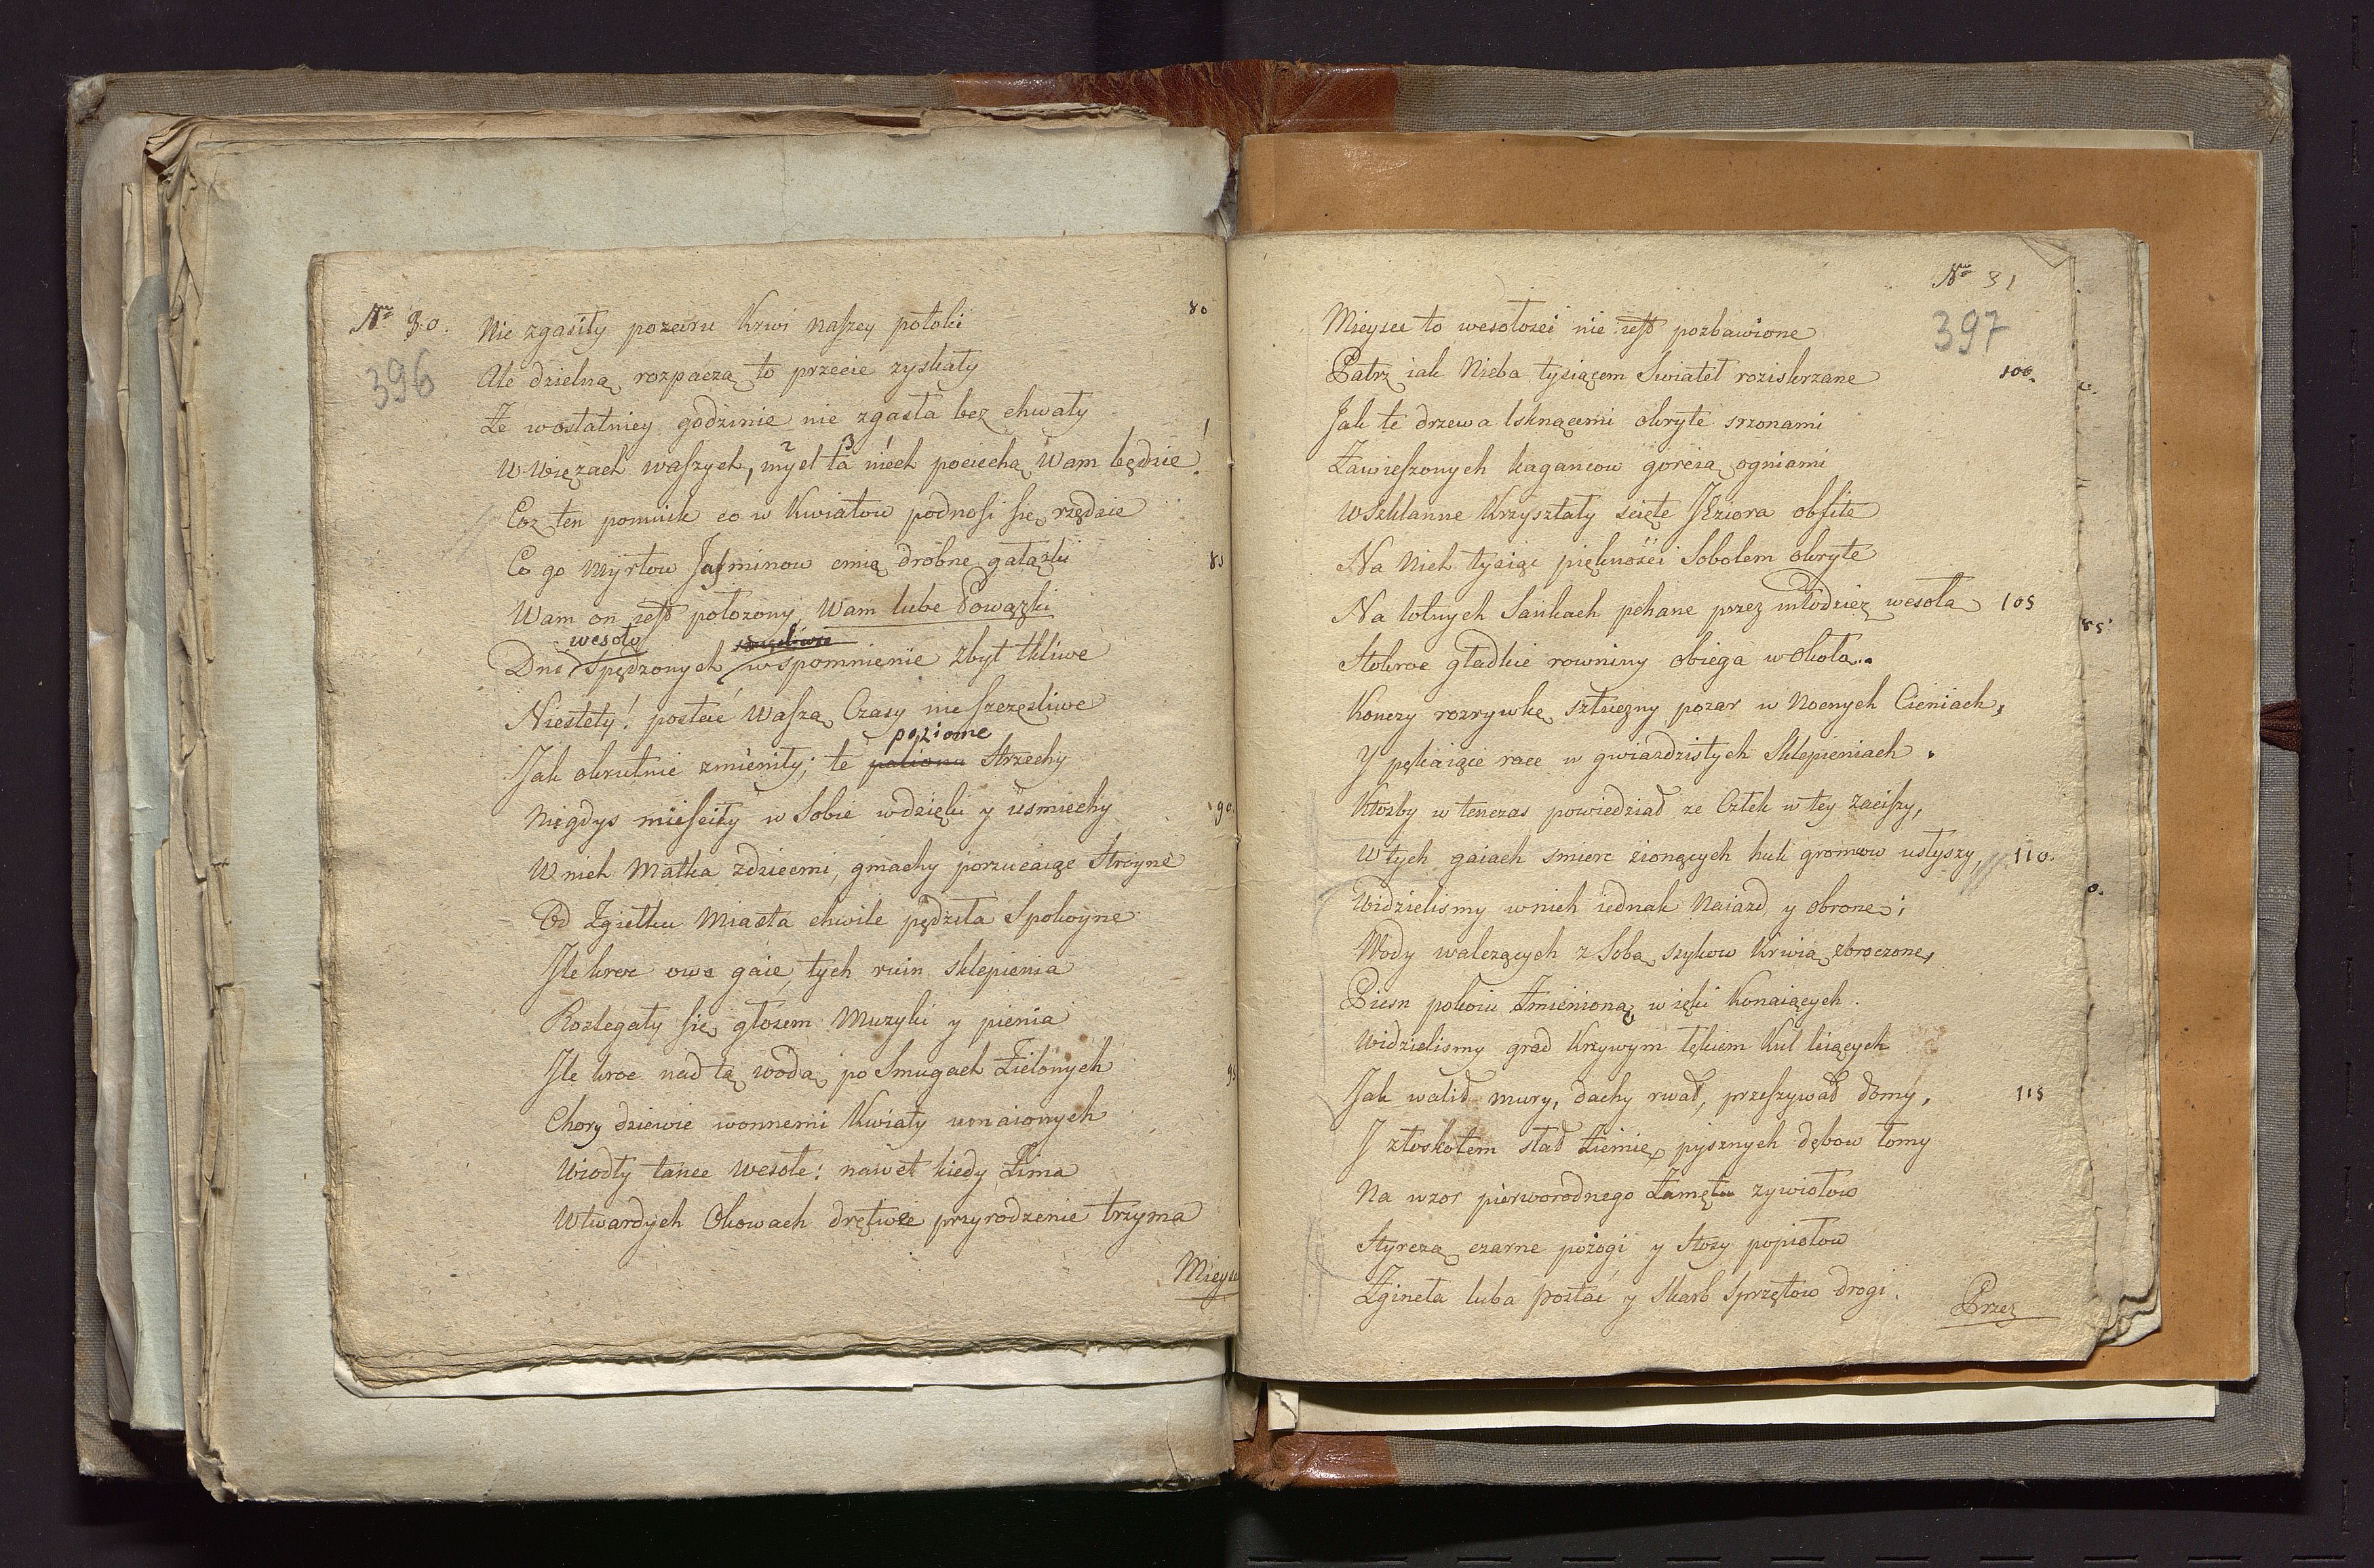 Nro 30.
396
Nie zgasiły pozaru Krwi naszey potoki 80
Ale dzielną rozpaczą to przecie zyskały
Ze wostatniey godzinie nie zgasła bez chwały
W Więzach waszych, mysl ta niech pociechą Wam będzie!
2 3 1
Coz ten pomnik co w Kwiatow podnosi się rzędzie
Co go Myrtow Jasminow cmią drobne gałązki 85
Wam on iest połozony Wam lube Powązki
wesoło
Dni spędzonych wspomnienie zbyt tkliwe
Niestety! postać Waszą Czasy nieszczęsliwe
poziome
Jak okrutnie zmieniły; te Strzechy
Niegdys miesciły w Sobie wdzięki y usmiechy 90.
W nich Matka zdziecmi, gmachy porzucaiąc Stroyne
Od Zgiełku Miasta chwile pędziła Spokoyne
Ile kroc owe gaie, tych ruin sklepienia
Rozlegały się głosem Muzyki y pienia
Ile kroc nad tą wodą po Smugach Zielonych 95
Chory dziewic wonnemi Kwiaty umaionych
Wiodły tance wesołe: nawet kiedy Zima
W twardych Okowach drętwe przyrodzenie trzyma
Mieysce
Nro 31
397
Mieysce to wesołosci nie iest pozbawione
Patrz iak Nieba tysiącem Swiateł roziskrzane 100.
Jak te drzewa lsknącemi okryte srzonami
Zawieszonych kagancow goreią ogniami
W Szklanne Krzyształy scięte Jeziora obfite
Na Nich tysiąc pięknosci Sobolem okryte
Na lotnych Sankach pchane przez młodziez wesoła 105
Stokroc gładkie rowniny obiega wokoła..
Konczy rozrywkę sztuczny pozar w Nocnych Cieniach,
Y pękaiące race w gwiazdzistych Sklepieniach.
Ktozby w tenczas powiedział ze Człek w tey zaciszy,
W tych gaiach smierc zionących huk gromow usłyszy, 110.
Widzielismy wnich iednak Naiazd y obronę;
Wody walczących z Sobą szykow Krwią zbroczone,
Piesn pokoiu Zmienioną w ięki Konaiących.
Widzielismy grad Krzywym łękiem Kul lecących
Jak walił mury, dachy rwał, przeszywał domy, 115
I złoskotem słał Ziemię pysznych dębow łomy
Na wzor pierworodnego Zamętu zywiołow
Styrczą czarne pożogi y Stosy popiołow
Zgineła luba postać y Skarb Sprzętow drogi.
Przez
85